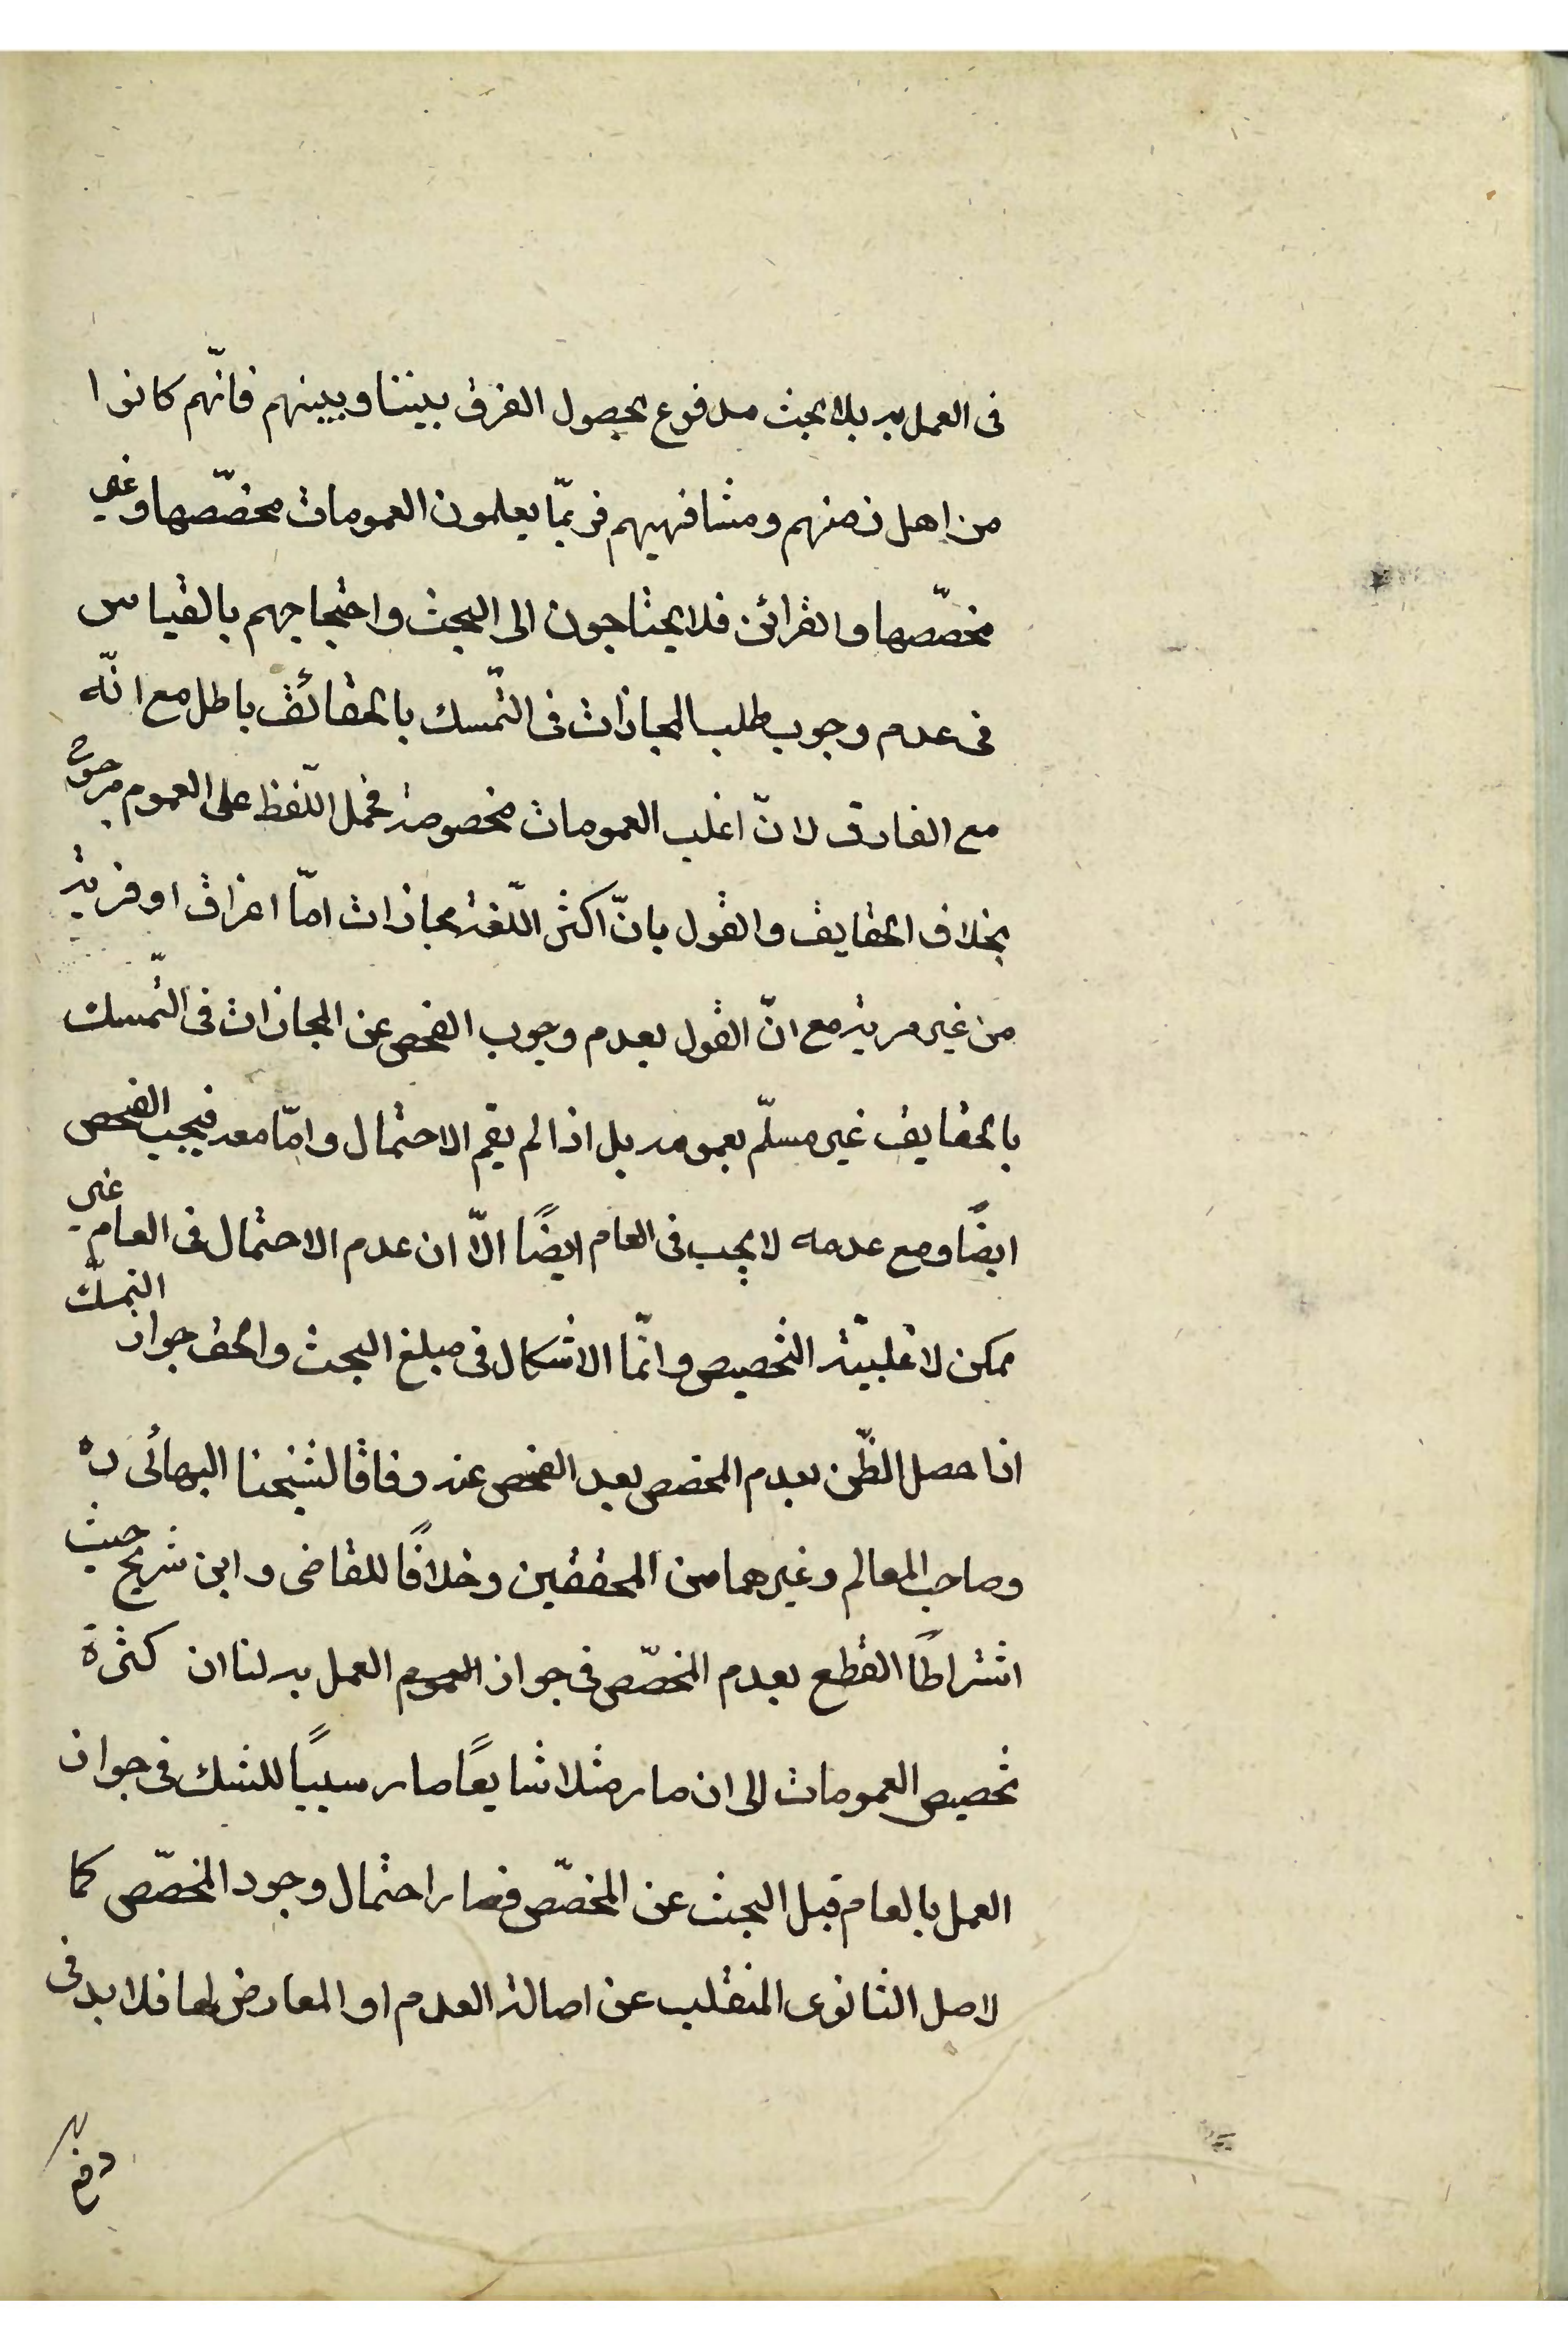 فى العمل به بلا بحث مدفوع بحصول الفرق بيننا وبينهم فانّهم كانوا
من اهل زمنهم ومشافهيهم فربمّا يعلمون العمومات مخصّصها وغير
مخصّصها والقرائن فلا يحتاجون الى البحث واحتجاجهم بالقياس
فى عدم وجوب طلب المجازات فى التّمسك بالحقائق باطل مع انّه
مع الفارق لانّ اغلب العمومات مخصوصة فحمل اللّفظ على العموم مرجوح
بخلاف الحقايق والقول بانّ اكثر اللّغة مجازات امّا اغراق او فرية
من غير مرية مع انّ القول بعدم وجوب الفحص عن المجازات فى التّمسك
بالحقايق غير مسلّم بعمومه بل اذا لم يقم الاحتمال وامّا معه فيجب الفحص
ايضًا ومع عدمه لا يجب فى العام ايضًا الّا ان عدم الاحتمال فى العام غير
ممكن لاغلبيّة التخصيص وانّما الاشكال فى مبلغ البحث والحق جواز التمسّك
اذا حصل الظّن بعدم المخصص بعد الفحص عنه وفاقا لشيخنا البهائى ره
وصاحب المعالم وغيرهما من المحققين وخلافًا للقاضى وابن شريح حيث
اشتراطًا القطع بعدم المخصّص فى جواز العموم العمل به لنا ان كثرة
تخصيص العمومات الى ان صار مثلا شايعًا صار سببًا للشك فى جواز
العمل بالعام قبل البحث عن المخصّص فصار احتمال وجود المخصّص كما
لاصل الثانوى المنقلب عن اصالة العدم او المعارض لها فلا بد فى